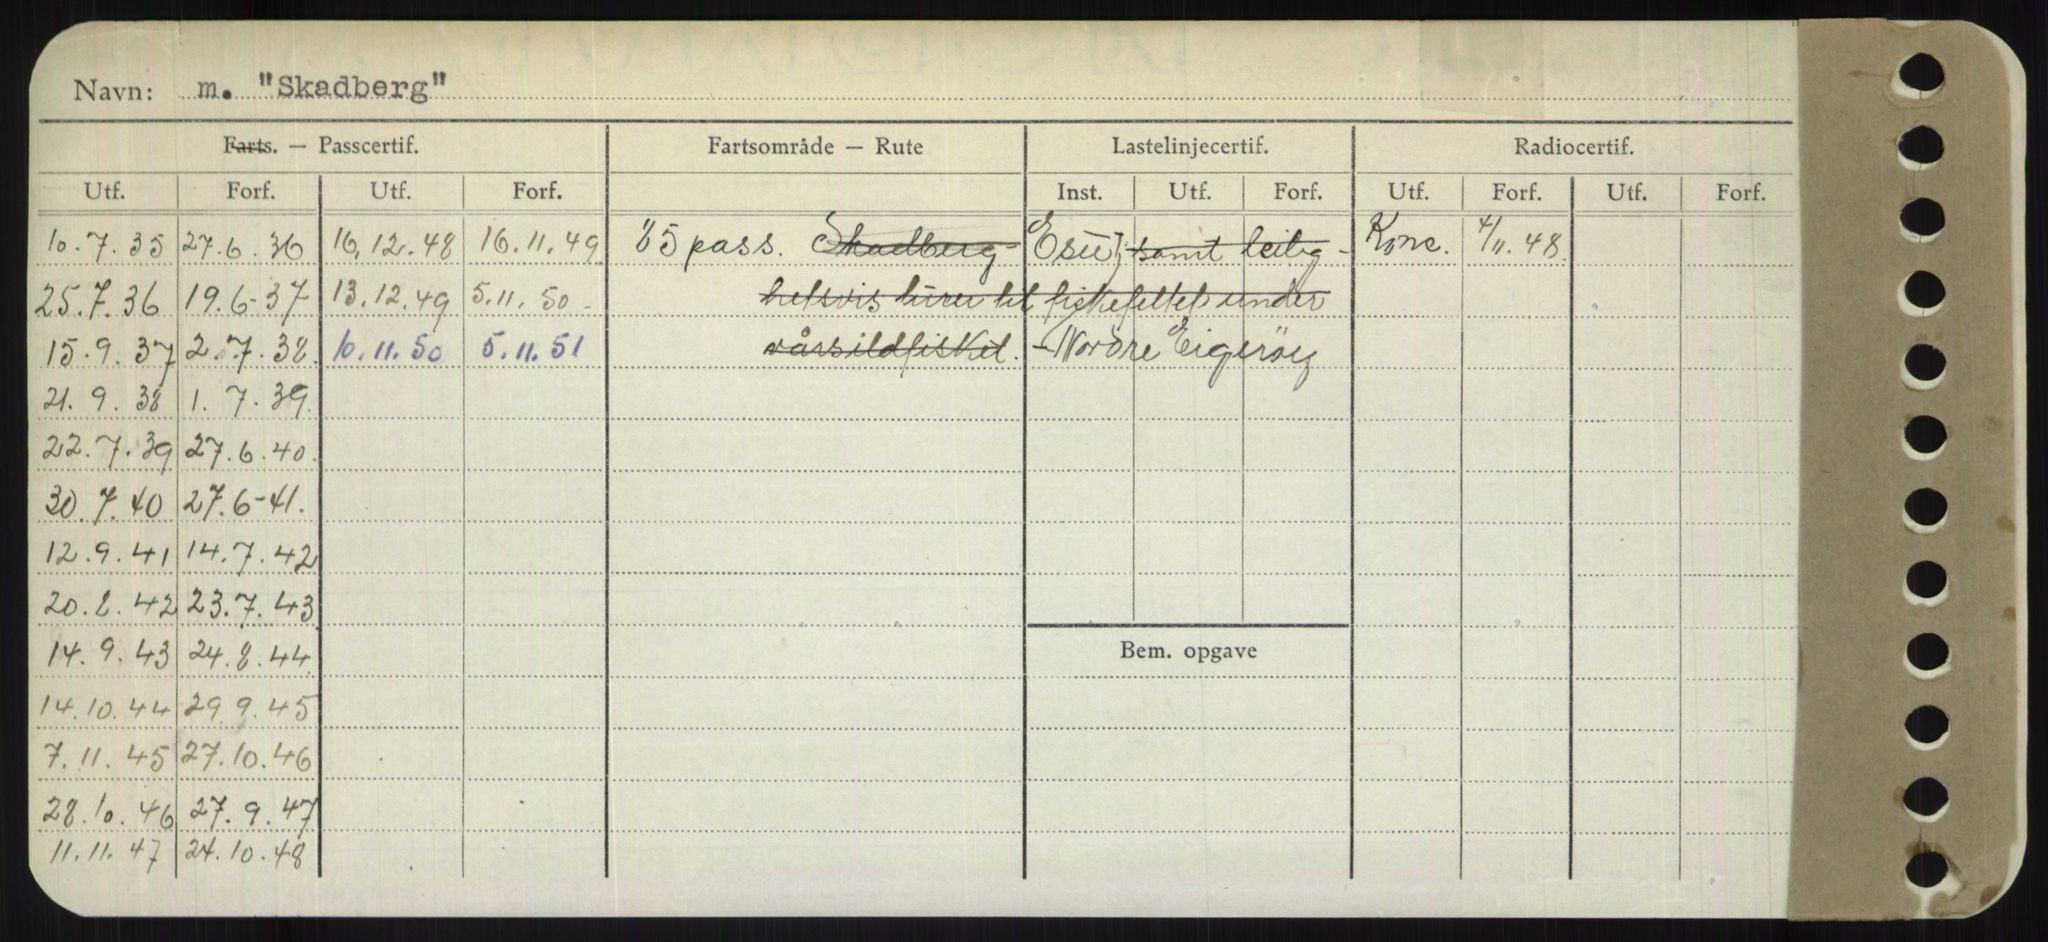 Navn: m. "Skadberg"
Farts. — Passcertif. Fartsområde — Rute Lastelinjecertif. Radiocertif.
Utf. Forf. Utf. Forf. Inst. Utf. Forf. Utf. Forf. Utf. Forf.
10.7.35 27.6.36 16.12.48 16.11.49 85 pass. Skadberg - samt leilig- Konc. 4/11.48
25.7.36 19.6-37 13.12.49 5.11.50- hetsvis turer til fiskefeltet under
15.9.37 2.7.38 10.11.50 5.11.51 vårsildfisket. - Nordre Eigeröy
21.9.38 1.7.39
22.7.39 27.6.40.
30.7.40 27.6-41.
12.9.41 14.7.42
20.8.42 23.7.43
14.9.43 24.8.44
Bem. opgave
14.10.44 29.9.45
7.11.45 27.10.46
28.10.46 27.9.47
11.11.47 24.10.48